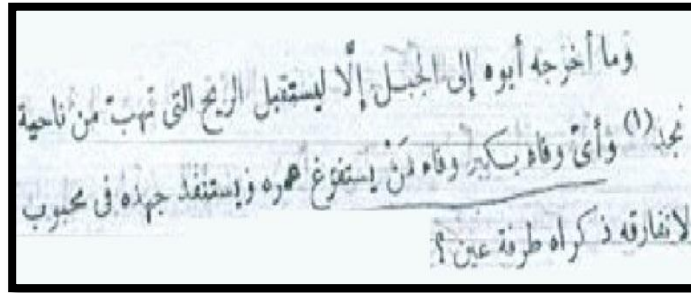 وما أخرجه أبوه إلى الجبل إلَّا ليستقبل الريح التى تهبّ من ناحية
نجد (١) وأىّ وفاء يكبر وفاء مَنْ يستفرغ عمره ويستنفد جهده فى محبوب
لا تفارقه ذكراه طرفة عين ؟